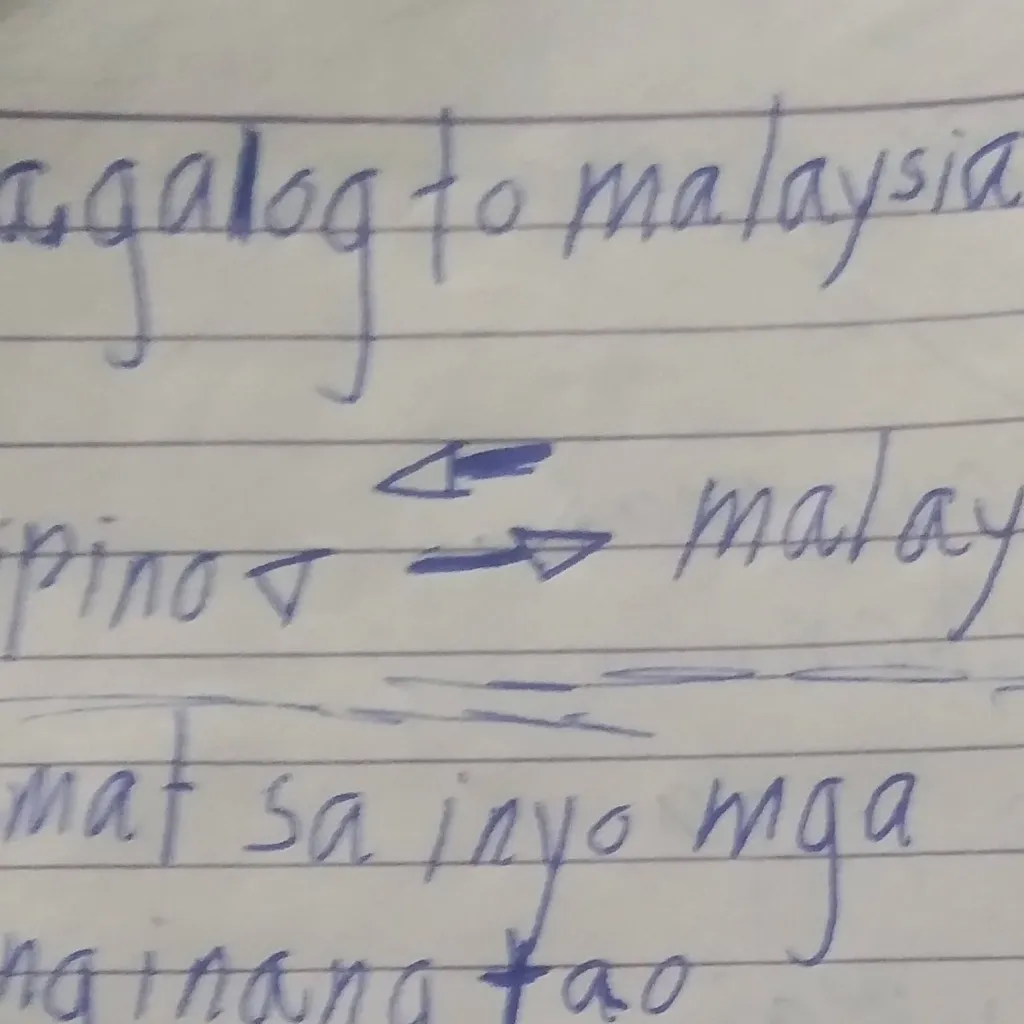 agalog to malaysia
pino malay
mat sa inyo mga
nginang tao